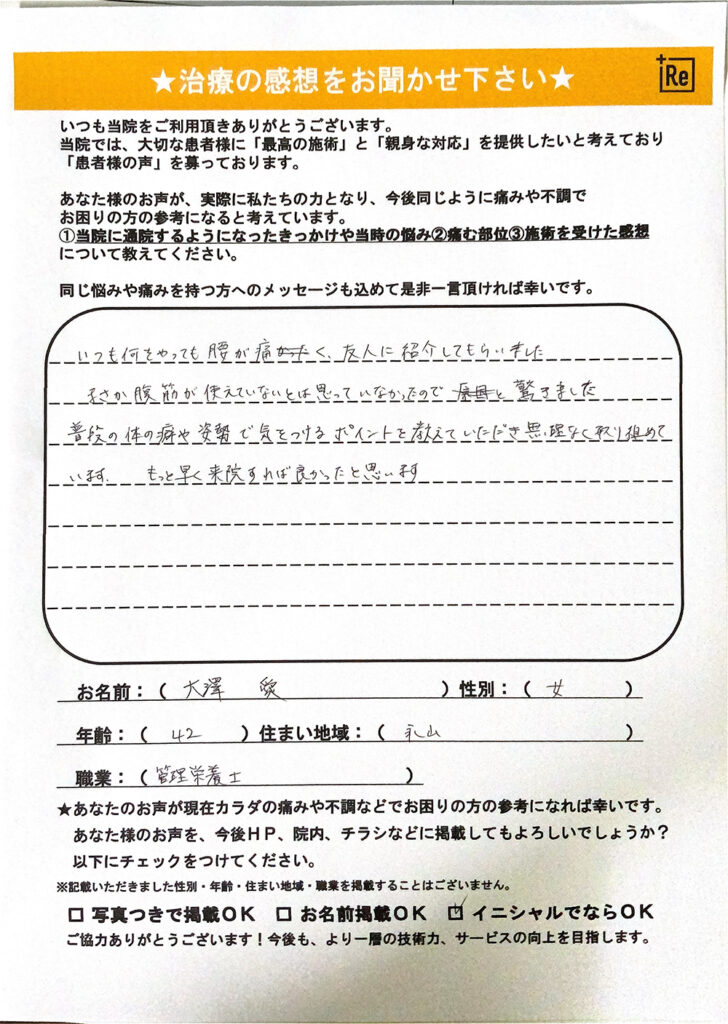 ★治療の感想をお聞かせ下さい★
+Re
いつも当院をご利用頂きありがとうございます。
当院では、大切な患者様に「最高の施術」と「親身な対応」を提供したいと考えており
「患者様の声」を募っております。
あなた様のお声が、実際に私たちの力となり、今後同じように痛みや不調で
お困りの方の参考になると考えています。
①当院に通院するようになったきっかけや当時の悩み②痛む部位③施術を受けた感想
について教えてください。
同じ悩みや痛みを持つ方へのメッセージも込めて是非一言頂ければ幸いです。
いつも何をやっても腰が痛く、友人に紹介してもらいました
まさか腹筋が使えていないとは思っていなかったので と驚きました
普段の体の癖や姿勢で気をつけるポイントを教えていただき無理なく取り組めて
います. もっと早く来院すれば良かったと思います
お名前：（ 大澤 愛 ）性別：（ 女 ）
年齢：（ 42 ）住まい地域：（ 永山 ）
職業：（ 管理栄養士 ）
★あなたのお声が現在カラダの痛みや不調などでお困りの方の参考になれば幸いです。
あなた様のお声を、今後ＨＰ、院内、チラシなどに掲載してもよろしいでしょうか？
以下にチェックをつけてください。
※記載いただきました性別・年齢・住まい地域・職業を掲載することはございません。
□ 写真つきで掲載ＯＫ □ お名前掲載ＯＫ ☑ イニシャルでならＯＫ
ご協力ありがとうございます！今後も、より一層の技術力、サービスの向上を目指します。